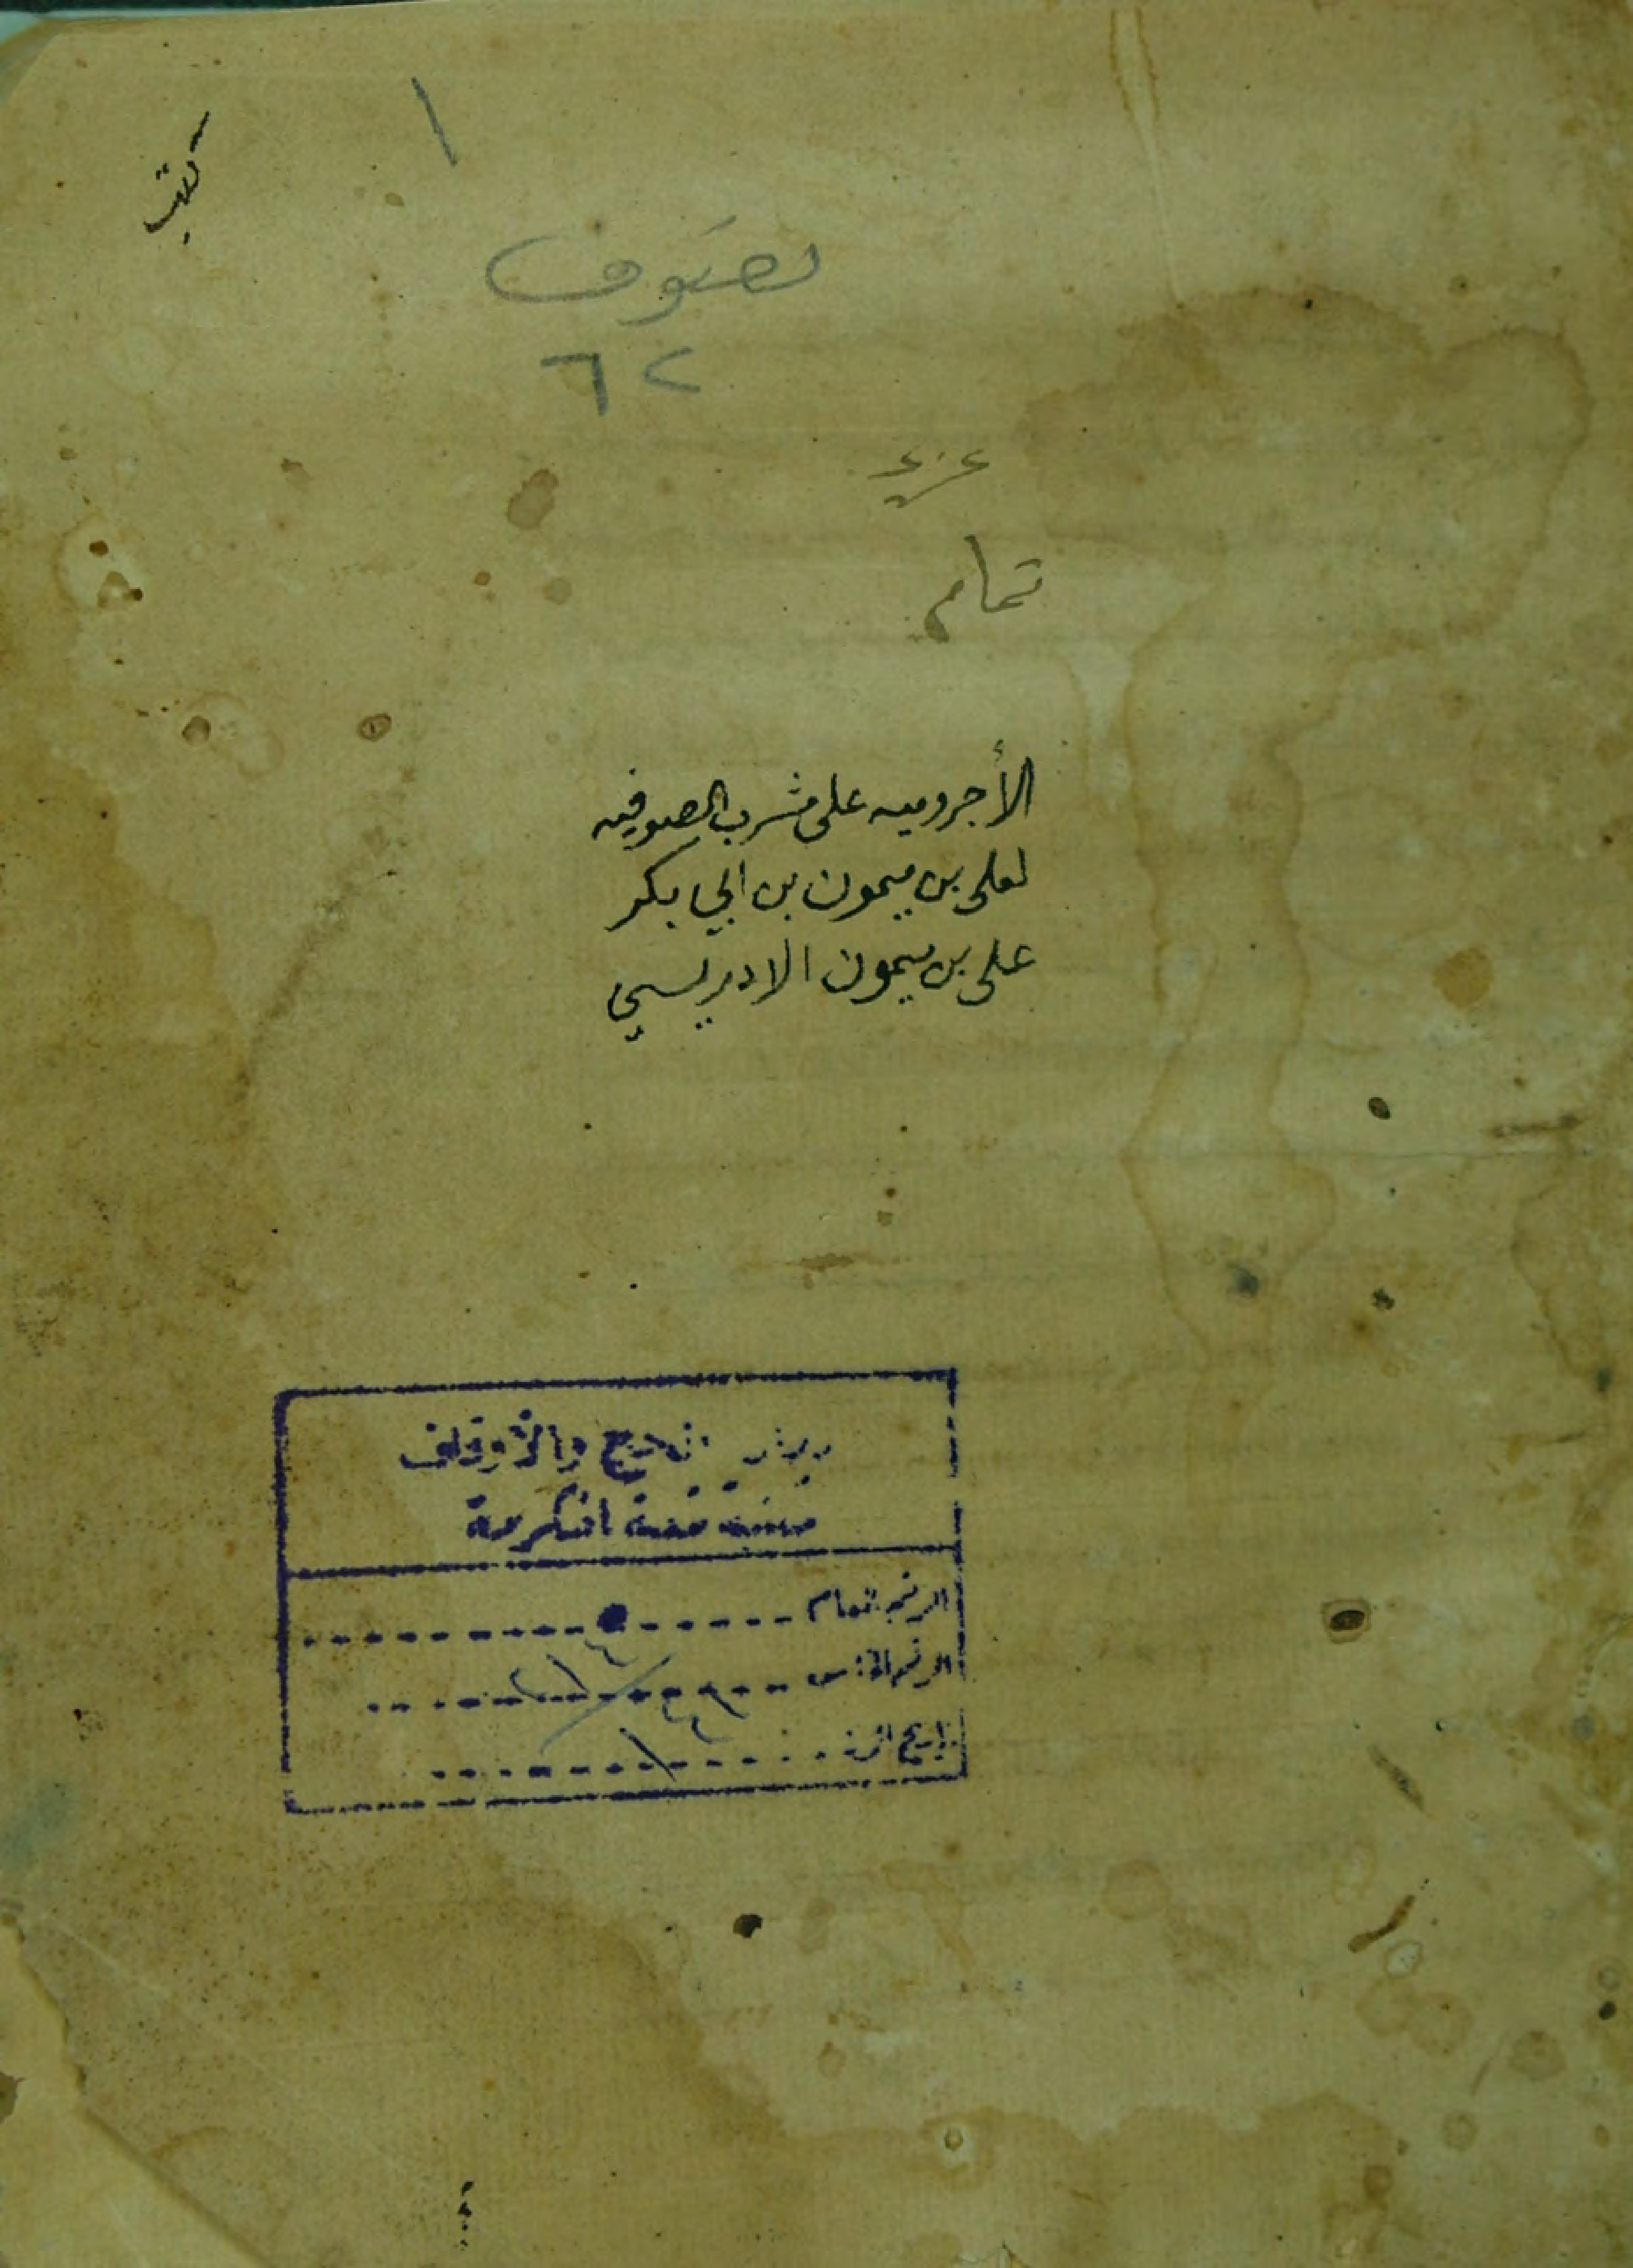 ١
كتب
تصوف
٦٢
تمام
الأجروميه على مشرب الصوفيه
لعلي بن ميمون بن ابي بكر
علي بن ميمون الادريسي
وزارة الحج والأوقاف
مكتبة مكة المكرمة
الرقم العام
الرقم الخاص
تاريخ